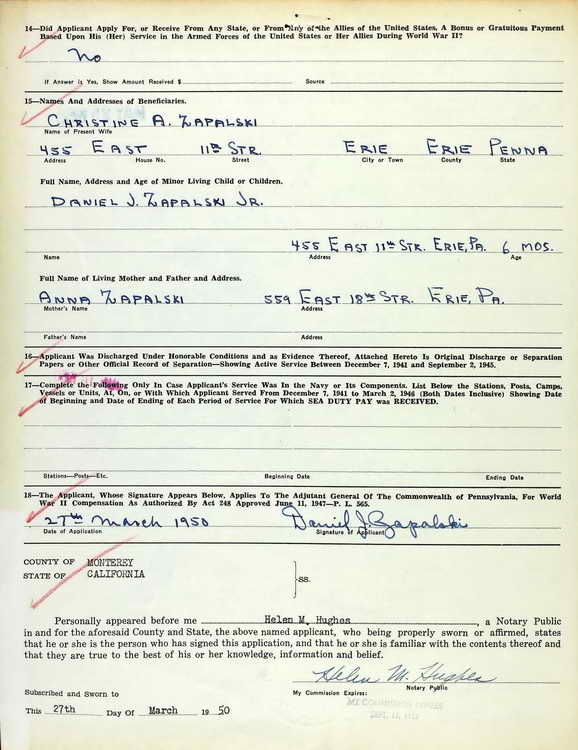 14—Did Applicant Apply For, or Receive From Any State, or From Any of the Allies of the United States, A Bonus or Gratuitous Payment
Based Upon His (Her) Service in the Armed Forces of the United States or Her Allies During World War II?
No
If Answer is Yes, Show Amount Received $ Source
15—Names And Addresses of Beneficiaries.
CHRISTINE A. ZAPALSKI
Name of Present Wife
455 EAST 11th STR. ERIE ERIE PENNA
Address House No. Street City or Town County State
Full Name, Address and Age of Minor Living Child or Children.
DANIEL J. ZAPALSKI JR.
455 EAST 11th STR. ERIE, PA. 6 MOS.
Name Address Age
Full Name of Living Mother and Father and Address.
ANNA ZAPALSKI 559 EAST 18th STR. ERIE, PA.
Mother's Name Address
Father's Name Address
16—Applicant Was Discharged Under Honorable Conditions and as Evidence Thereof, Attached Hereto Is Original Discharge or Separation
Papers or Other Official Record of Separation—Showing Active Service Between December 7, 1941 and September 2, 1945.
17—Complete the Following Only In Case Applicant's Service Was In the Navy or Its Components. List Below the Stations, Posts, Camps,
Vessels or Units, At, On, or With Which Applicant Served From December 7, 1941 to March 2, 1946 (Both Dates Inclusive) Showing Date
of Beginning and Date of Ending of Each Period of Service For Which SEA DUTY PAY was RECEIVED.
Stations—Posts—Etc. Beginning Date Ending Date
18—The Applicant, Whose Signature Appears Below, Applies To The Adjutant General Of The Commonwealth of Pennsylvania, For World
War II Compensation As Authorized By Act 248 Approved June 11, 1947—P. L. 565.
27th March 1950 Daniel J. Zapalski
Date of Application Signature of Applicant
COUNTY OF MONTEREY
STATE OF CALIFORNIA
SS.
Personally appeared before me Helen M. Hughes, a Notary Public
in and for the aforesaid County and State, the above named applicant, who being properly sworn or affirmed, states
that he or she is the person who has signed this application, and that he or she is familiar with the contents thereof and
that they are true to the best of his or her knowledge, information and belief.
Helen M. Hughes
Notary Public
Subscribed and Sworn to My Commission Expires:
MY COMMISSION EXPIRES
This 27th Day Of March 19 50